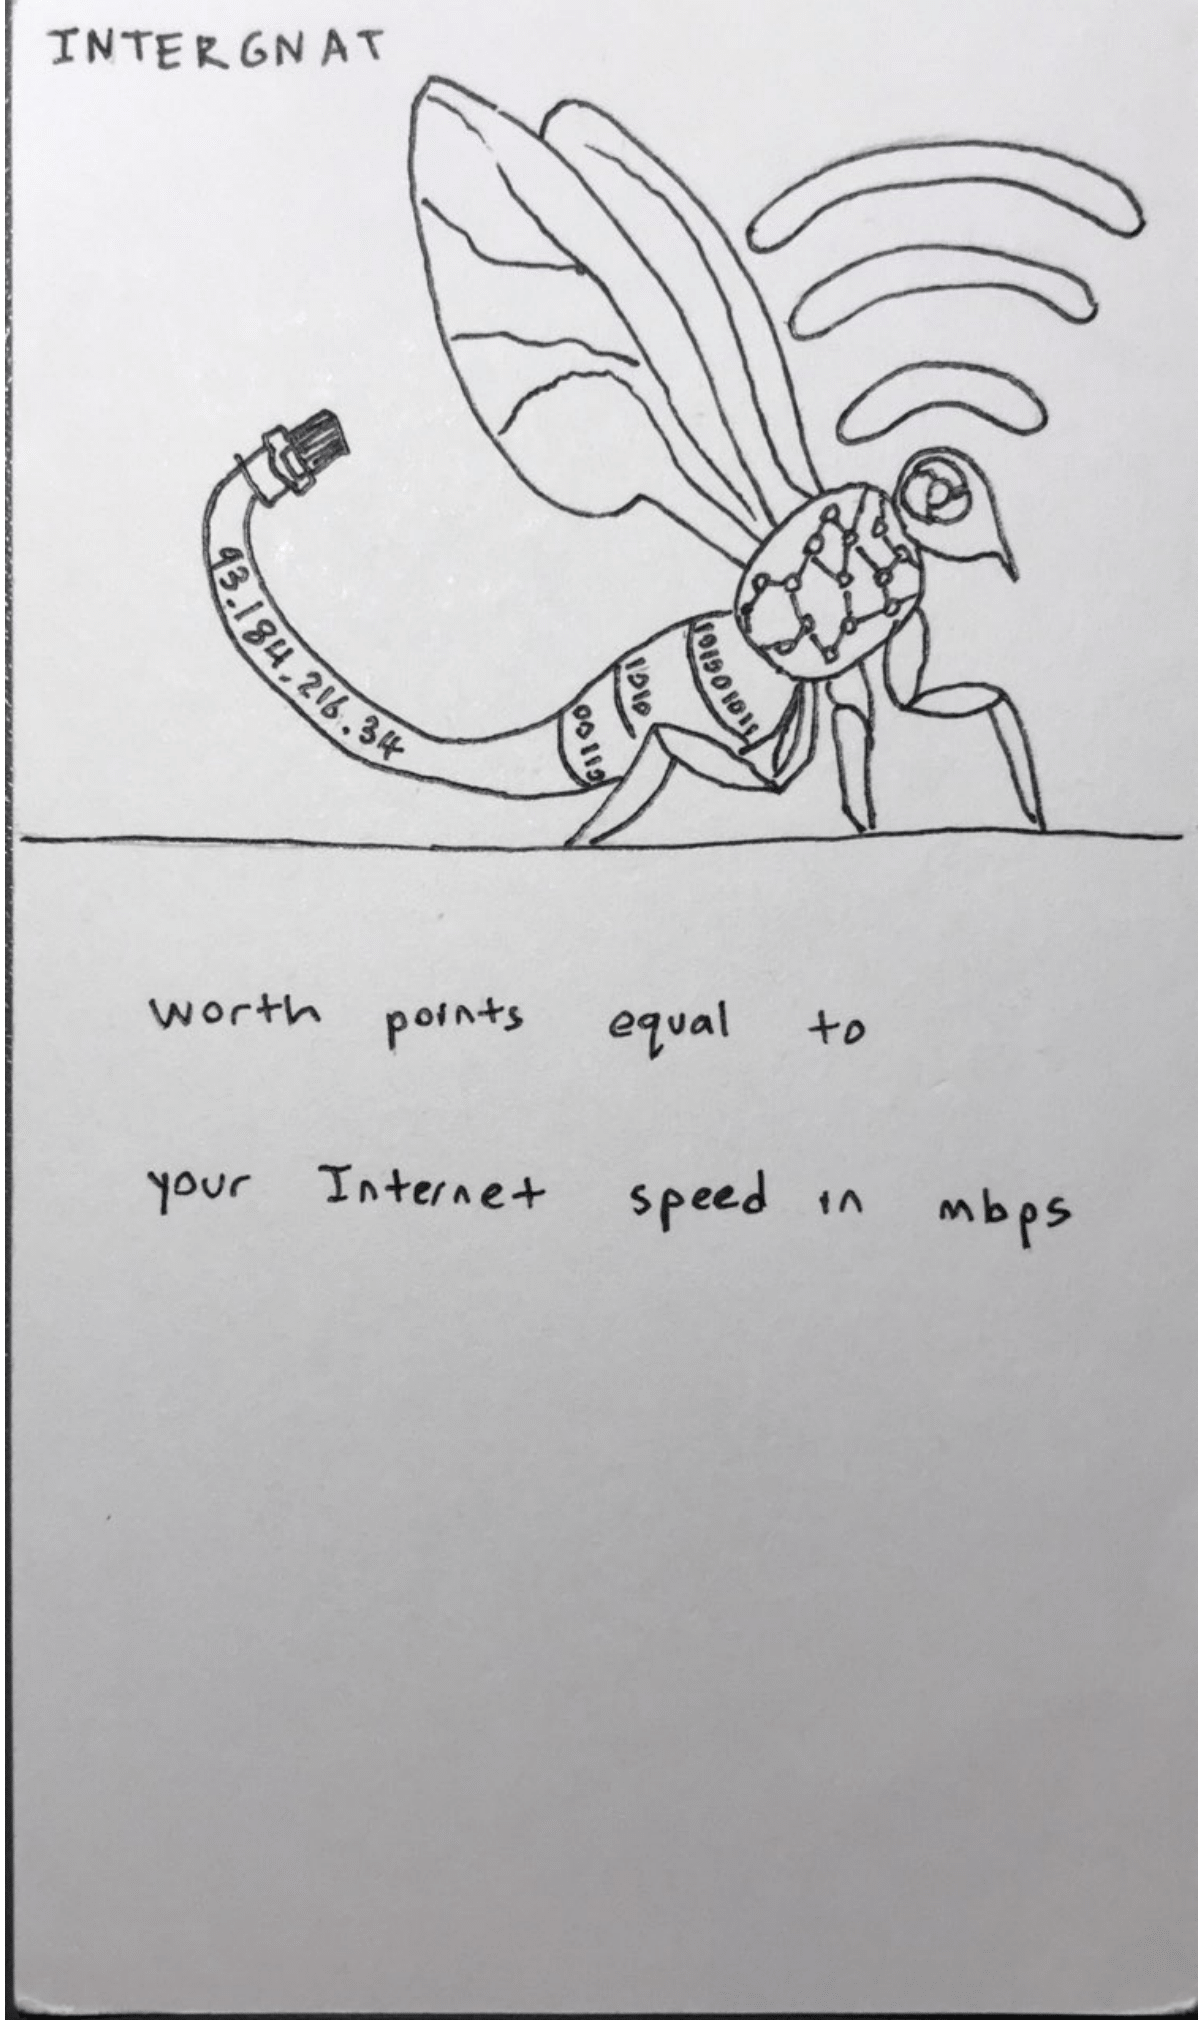 INTERGNAT
93.184.216.34
00110
1010
worth points equal to
your Internet speed in mbps